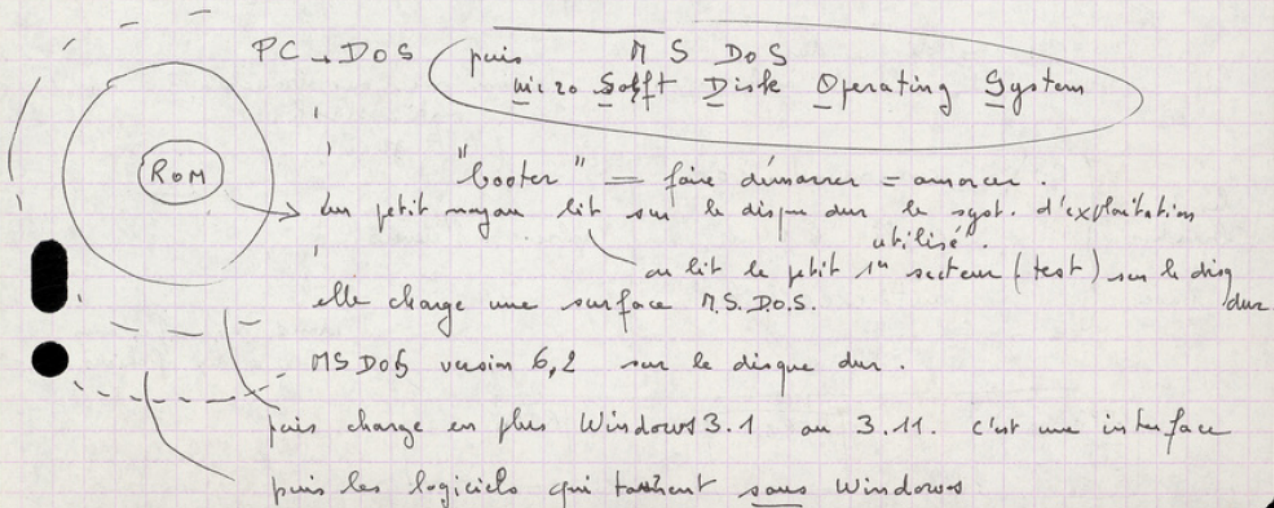 PC-DOS puis MS DOS
Micro Sofft Disk Operating System
ROM
"booter" = faire démarrer = amorcer.
un petit noyau lit sur le disque dur le syst. d'exploitation
utilisé.
on lit le petit 1er secteur (test) sur le disq
dur
elle charge une surface M.S.D.O.S.
MS DOS version 6,2 sur le disque dur.
puis charge en plus Windows 3.1 ou 3.11. c'est une interface
puis les logiciels qui sous Windows